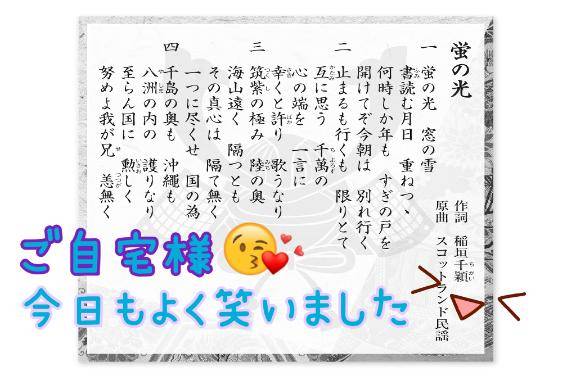 蛍の光
作詞 稲垣千穎
原曲 スコットランド民謡
一 蛍の光 窓の雪
書読む月日 重ねつゝ
何時しか年も すぎの戸を
開けてぞ今朝は 別れ行く
二 止まるも行くも 限りとて
互に思う 千萬の
心の端を 一言に
幸くと許り 歌うなり
三 筑紫の極み 陸の奥
海山遠く 隔つとも
その真心は 隔て無く
一つに尽くせ 国の為
四 千島の奥も 沖縄も
八洲の内の 護りなり
至らん国に 勲しく
努めよ我が兄 恙無く
ご自宅様
今日もよく笑いました